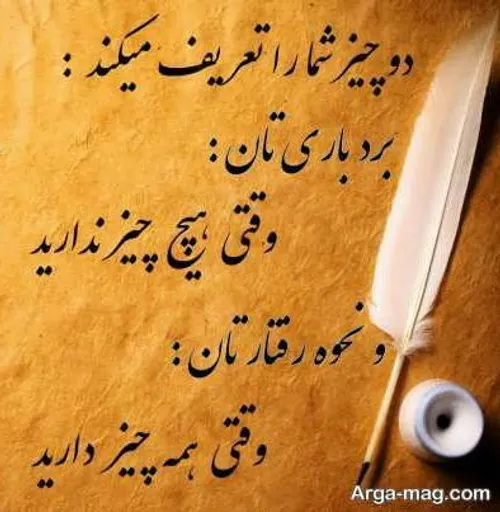 دو چیز شما را تعریف میکند :
برد باری تان :
وقتی هیچ چیز ندارید
و نحوه رفتار تان :
وقتی همه چیز دارید
Arga-mag.com